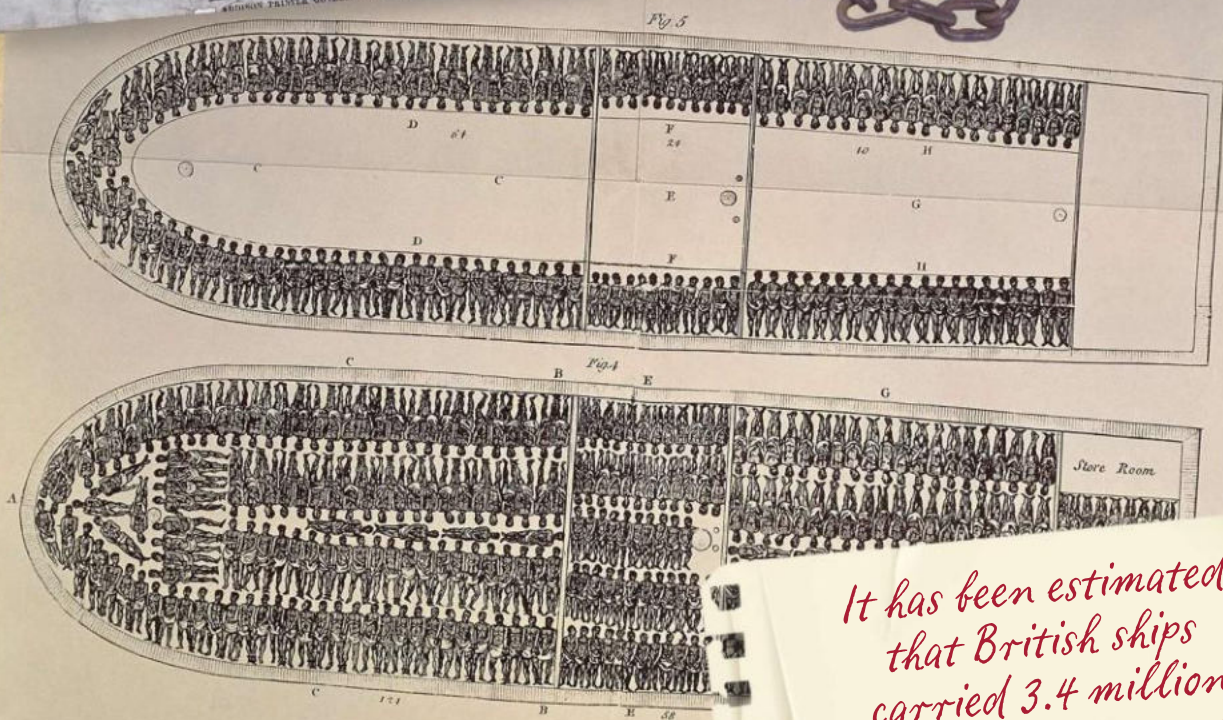 Fig 5
D
F
61
24
10
H
C
C
E
G
D
F
H
Fig.4
C
B
E
G
A
Store Room
C
121
B
E
58
It has been estimated
that British ships
carried 3.4 million